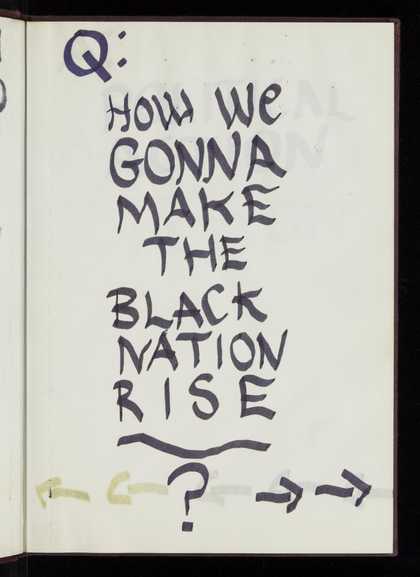 Q:
HOW WE
GONNA
MAKE
THE
BLACK
NATION
RISE
?